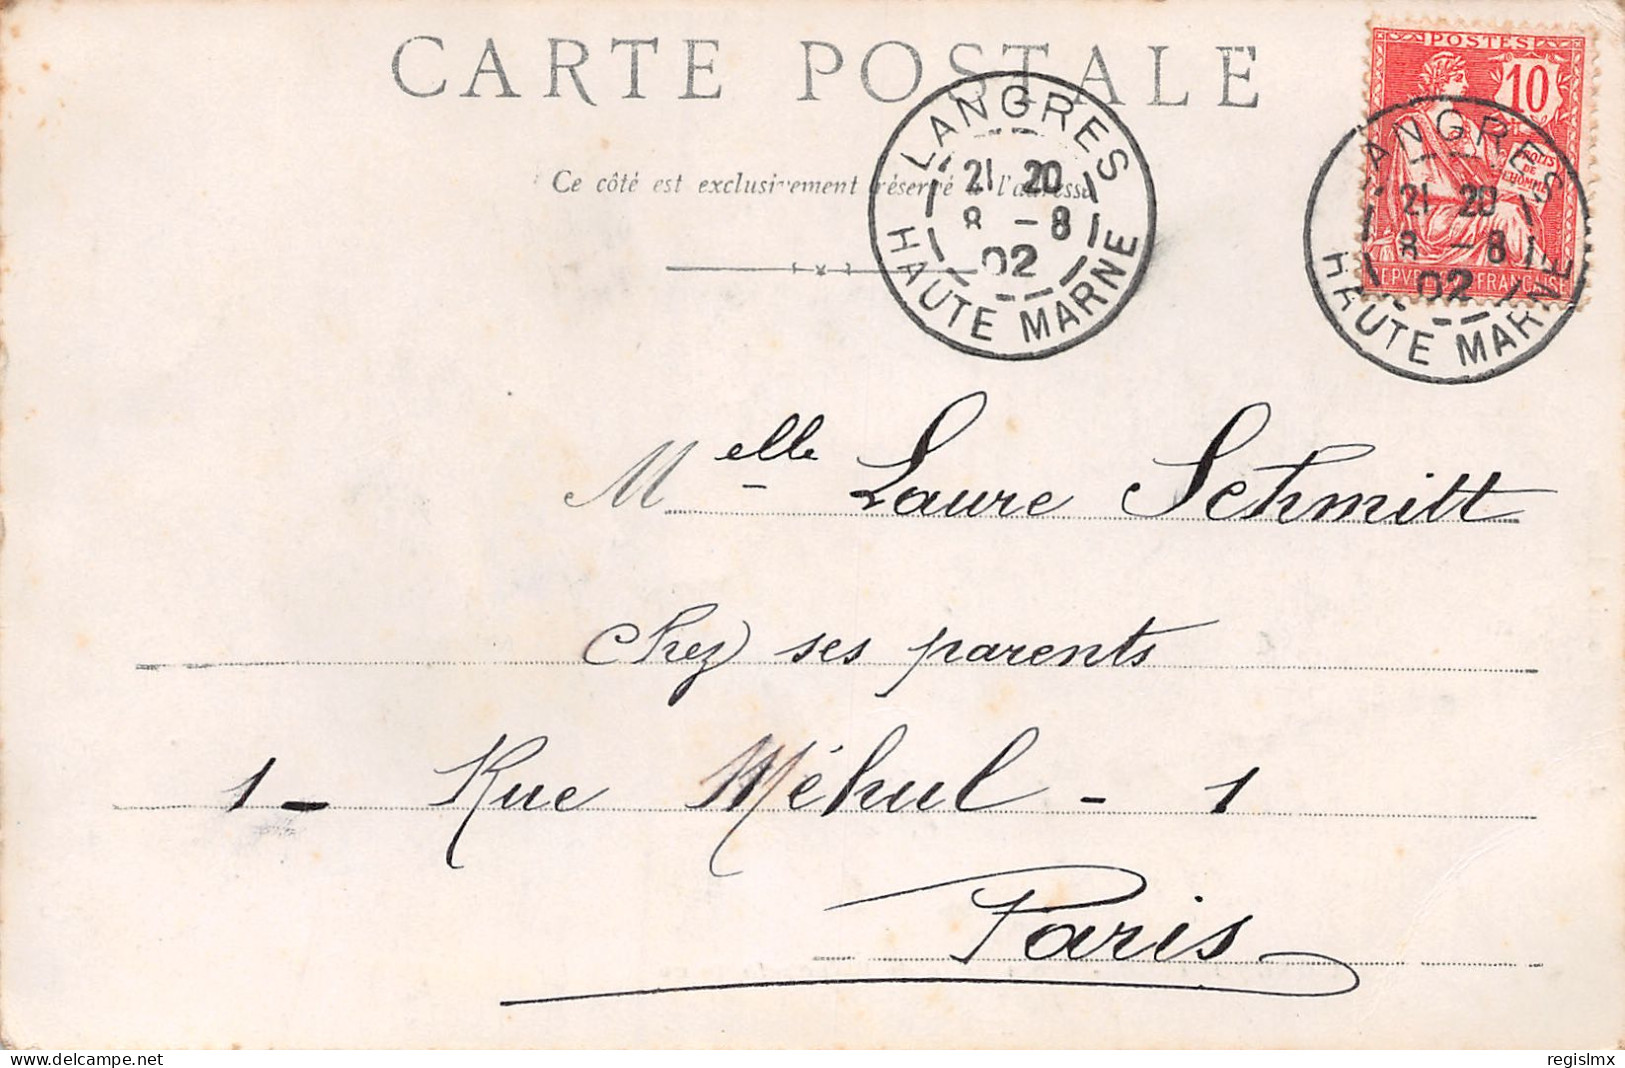 CARTE POSTALE
POSTES
10
DROITS
DE
L'HOMME
FRANÇAISE
Ce côté est exclusivement réservé à l'adresse
LANGRES
21 20
8 - 8
02
HAUTE MARNE
LANGRES
21 20
8 - 8
02
HAUTE MARNE
Melle Laure Schmitt
Chez ses parents
1 - Rue Méhul - 1
Paris
delcampe.net
regislmx